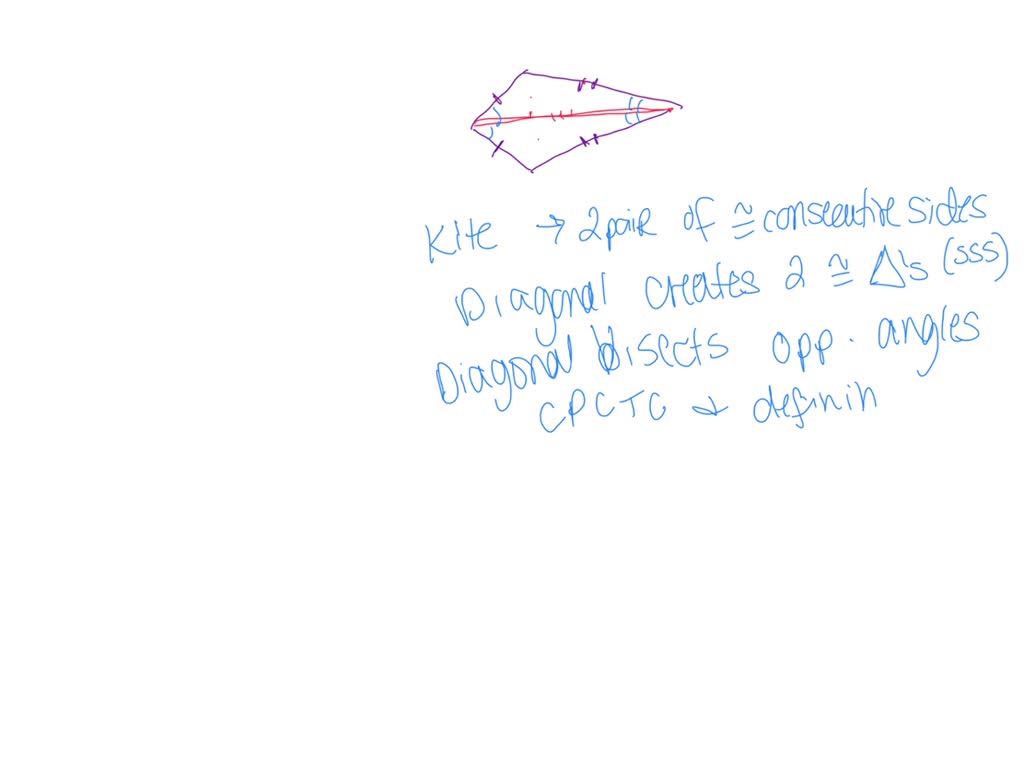 Kite → 2 pair of ≅ consecutive sides
Diagonal creates 2 ≅ Δ's (SSS)
Diagonal bisects opp. angles
CPCTC & definin